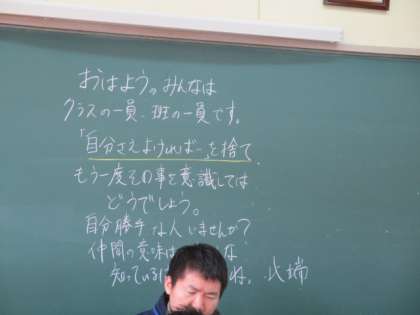 おはよう。みんなは
クラスの一員、班の一員です。
「自分さえよければ…」を捨て
もう一度その事を意識しては
どうでしょう。
自分勝手な人いませんか?
仲間の意味は な
知っている ね。